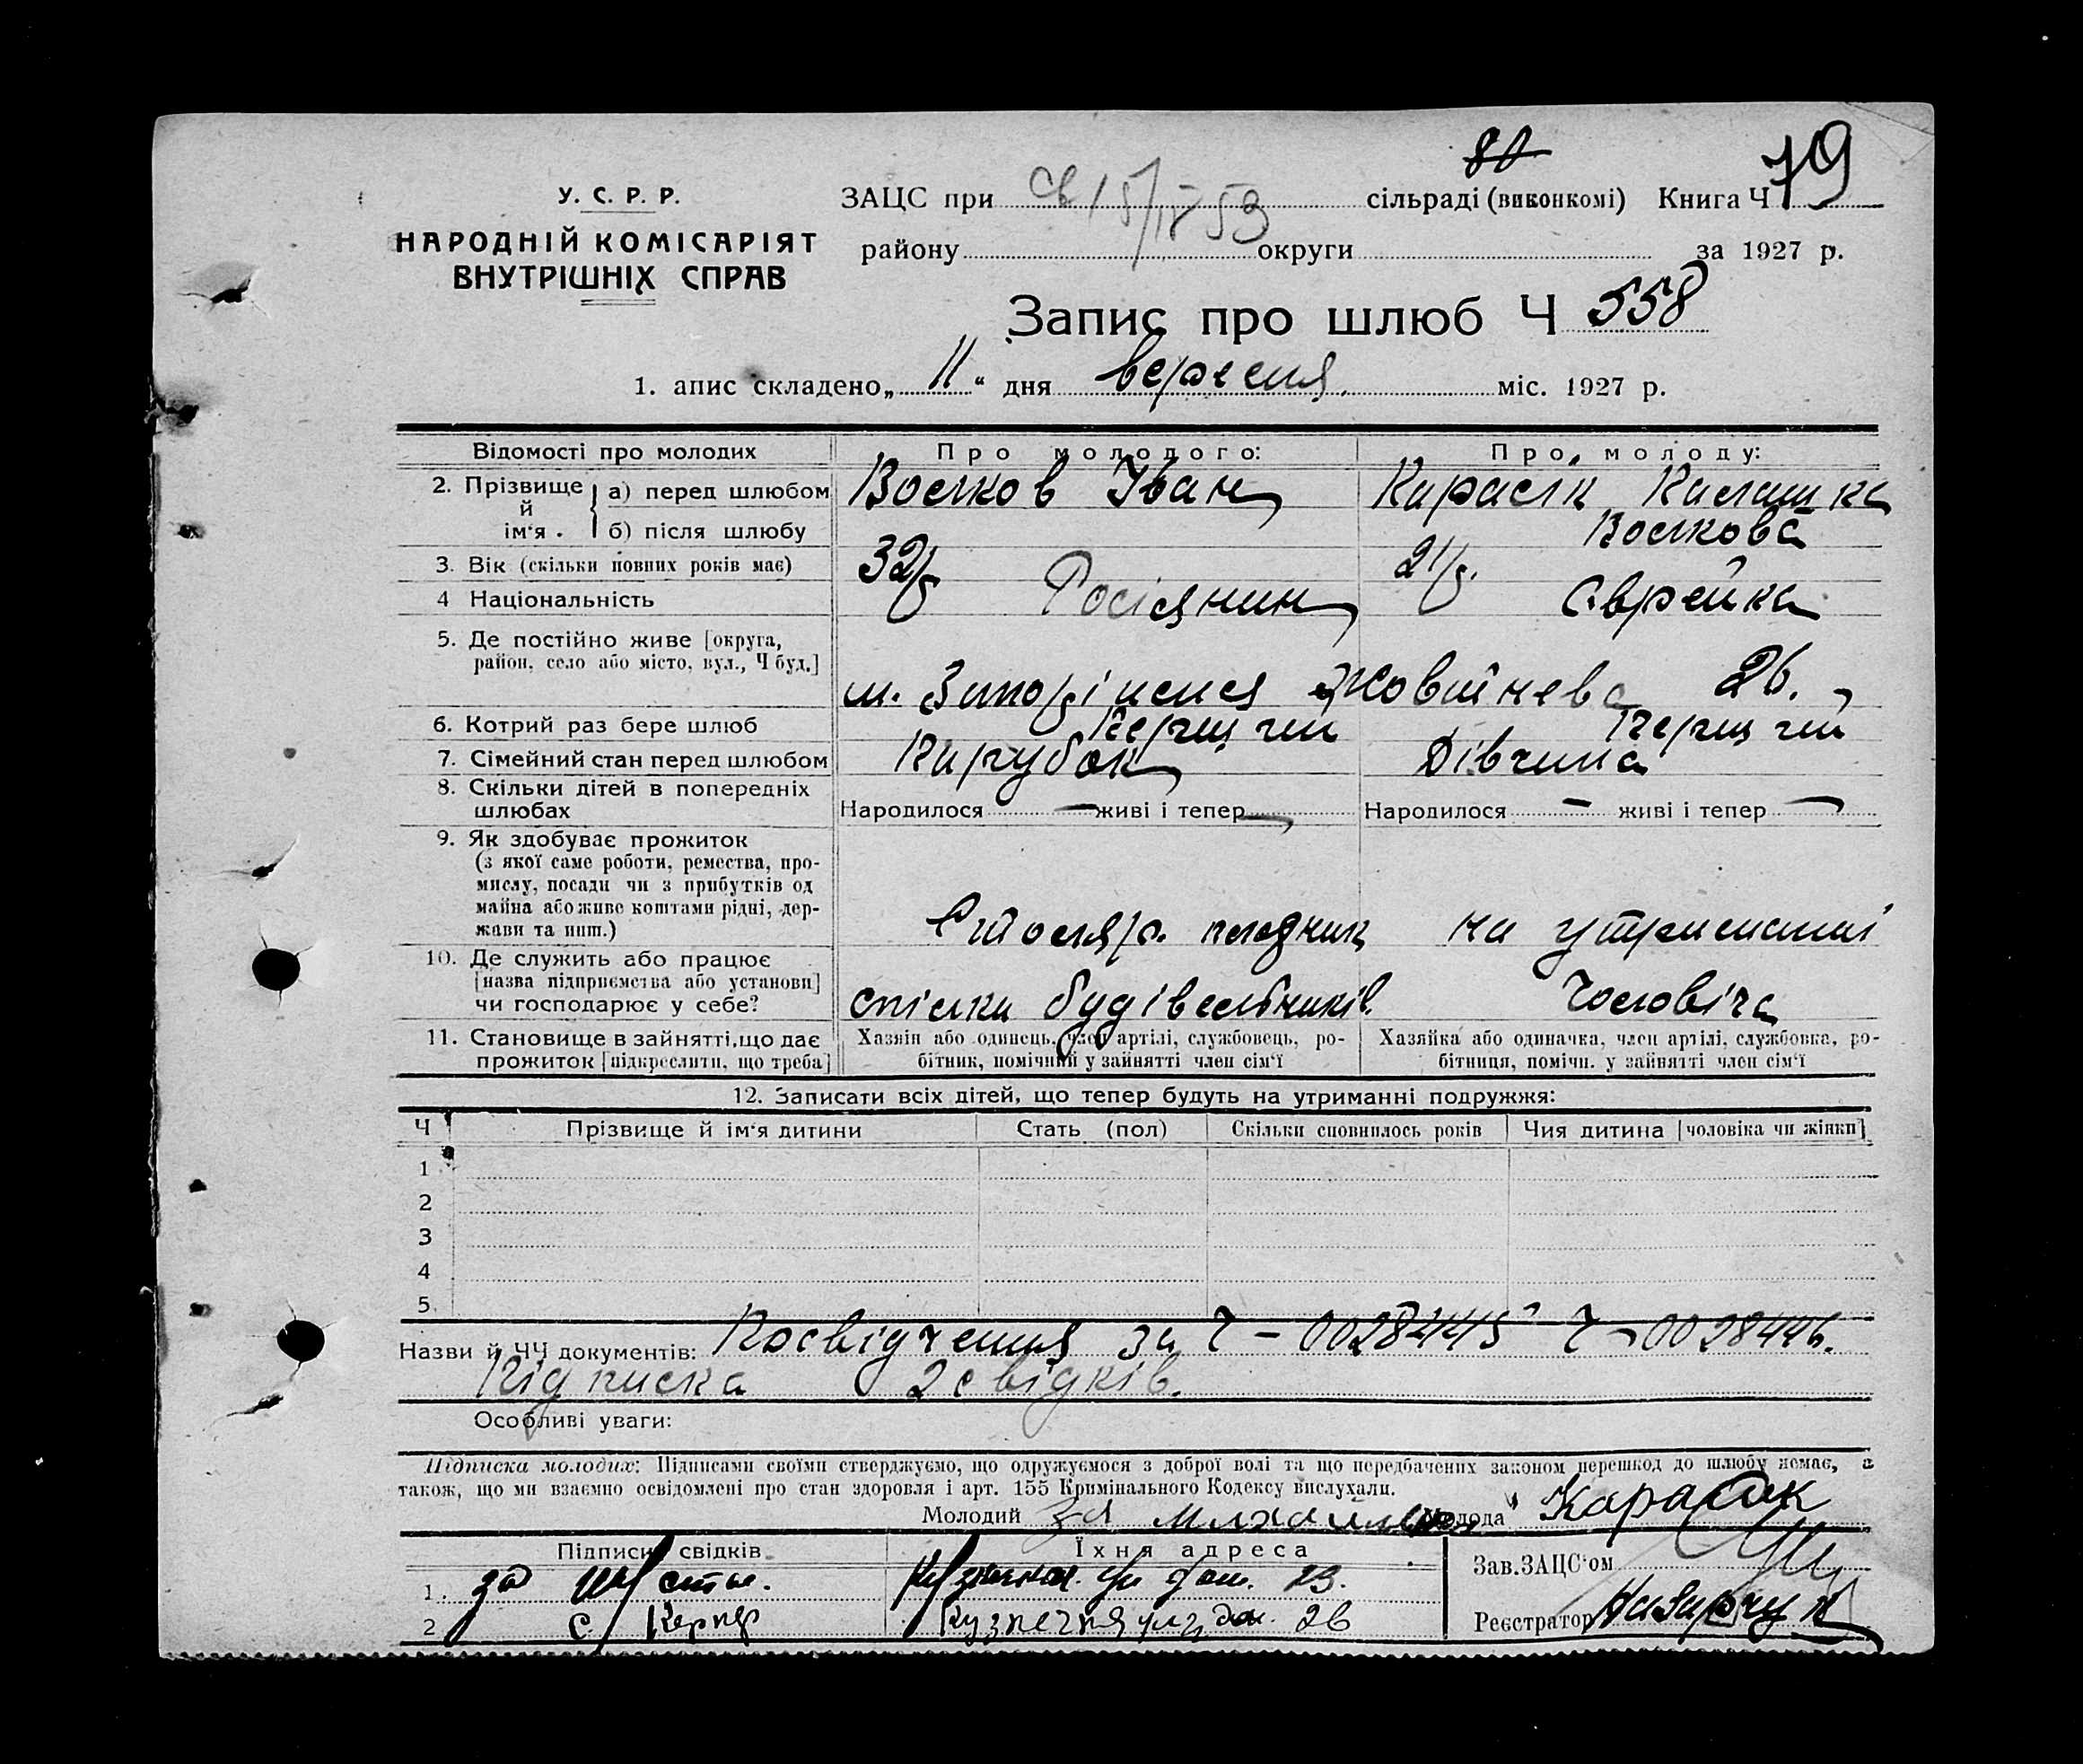 80
У. С. Р. Р.
НАРОДНІЙ КОМІСАРІЯТ
ВНУТРІШНІХ СПРАВ
ЗАЦС при св 15/IV 53 сільраді (виконкомі) Книга Ч 79
району округи за 1927 р.
Запис про шлюб Ч 558
1. апис складено „ 11 “ дня вересня міс. 1927 р.
Відомості про молодих Про молодого: Про молоду:
2. Прізвище й ім‘я . а) перед шлюбом Волков Іван Карасік
б) після шлюбу Волкова
3. Вік (скільки повних років має) 32 р 21 р.
4 Національність Росіянин Єврейка
5. Де постійно живе [округа,
район, село або місто, вул., Ч буд.]
м. Запоріжжя Жовтнева 26.
6. Котрий раз бере шлюб Перший Перший
7. Сімейний стан перед шлюбом Парубок Дівчина
8. Скільки дітей в попередніх
шлюбах Народилося — живі і тепер — Народилося — живі і тепер —
9. Як здобуває прожиток
(з якої саме роботи, ремества, про-
мислу, посади чи з прибутків од
майна або живе коштами рідні, дер-
жави та инш.)
Столяр. на утриманні
10. Де служить або працює
[назва підприємства або установи]
чи господарює у себе?
спілки будівельників. чоловіча
11. Становище в зайнятті, що дає Хазяін або одинець, член артілі, службовець, ро- Хазяйка або одиначка, член артілі, службовка, ро-
прожиток [підкреслити, що треба] бітник, помічний у зайнятті член сім‘ї бітниця, помічн. у зайнятті член сім‘ї
12. Записати всіх дітей, що тепер будуть на утриманні подружжя:
Ч Прізвище й ім‘я дитини Стать (пол) Скільки сповнилось років Чия дитина [чоловіка чи жінки]
1
2
3
4
5.
Назви й ЧЧ документів: Посвідчення за Ч – 0028445 Ч – 0028446.
Підписка 2 свідків.
Особливі уваги:
Підписка молодих: Підписами своїми стверджуємо, що одружуємося з доброї волі та що передбачених законом перешкод до шлюбу немає, а
також, що ми взаємно освідомлені про стан здоровля і арт. 155 Кримінального Кодексу вислухали.
Молодий Молода Карасик
Підписи свідків Їхня адреса Зав. ЗАЦС‘ом
1. за 23.
2 С Кернер Кузнечная ул дом 26 Реєстратор